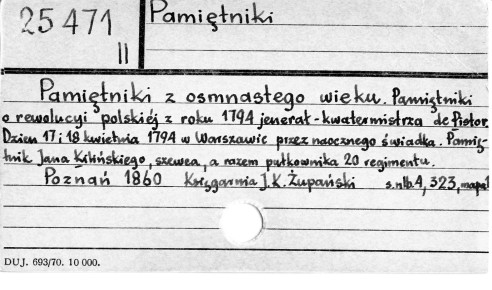 25 471
II
Pamiętniki
Pamiętniki z osmnastego wieku. Pamiętniki
o rewolucyi polskiéj z roku 1794 jenerał-kwatermistrza de Pistor.
Dzień 17 i 18 kwietnia 1794 w Warszawie przez naocznego świadka. Pamię-
tnik Jana Kilińskiego, szewca, a razem pułkownika 20 regimentu.
Poznań 1860 Księgarnia J.K. Żupański s.nlb.4, 323, mapa 1
DUJ. 693/70. 10 000.